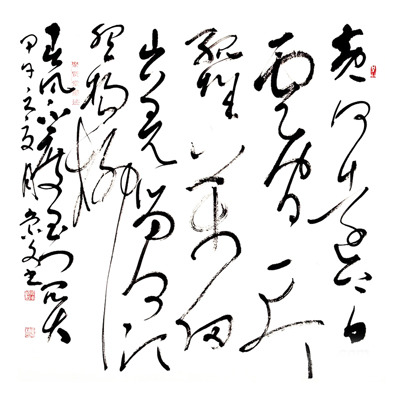 黄河远上白
云间一片
孤城万仞
山羌笛何须
怨杨柳
春风不度玉门关
甲午之夏月崇文书